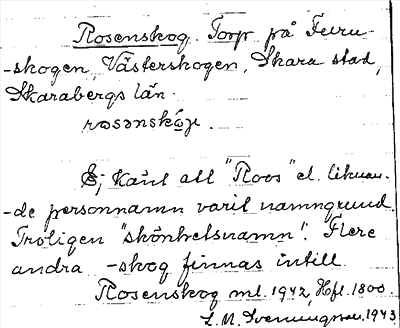 Rosenskog. Torp på Furu-
-skogen, Västerskogen, Skara stad,
Skarabergs län.
rosənskóg.
Ej känt att "Roos" el. liknan-
-de personnamn varit namngrund.
Troligen "skönhetsnamn". Flere
andra -skog finnas intill.
Rosenskog ml. 1942, Hfl. 1800.
L. M. 1943